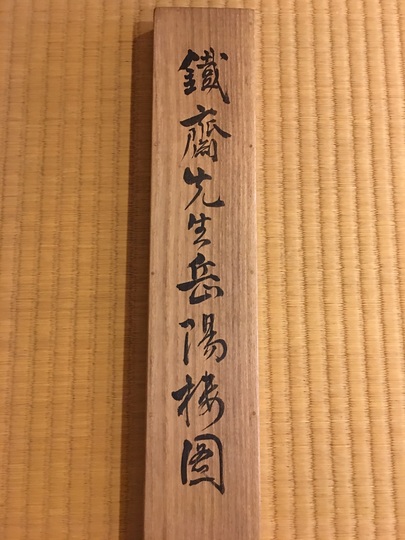 鐵齋先生岳陽樓圖